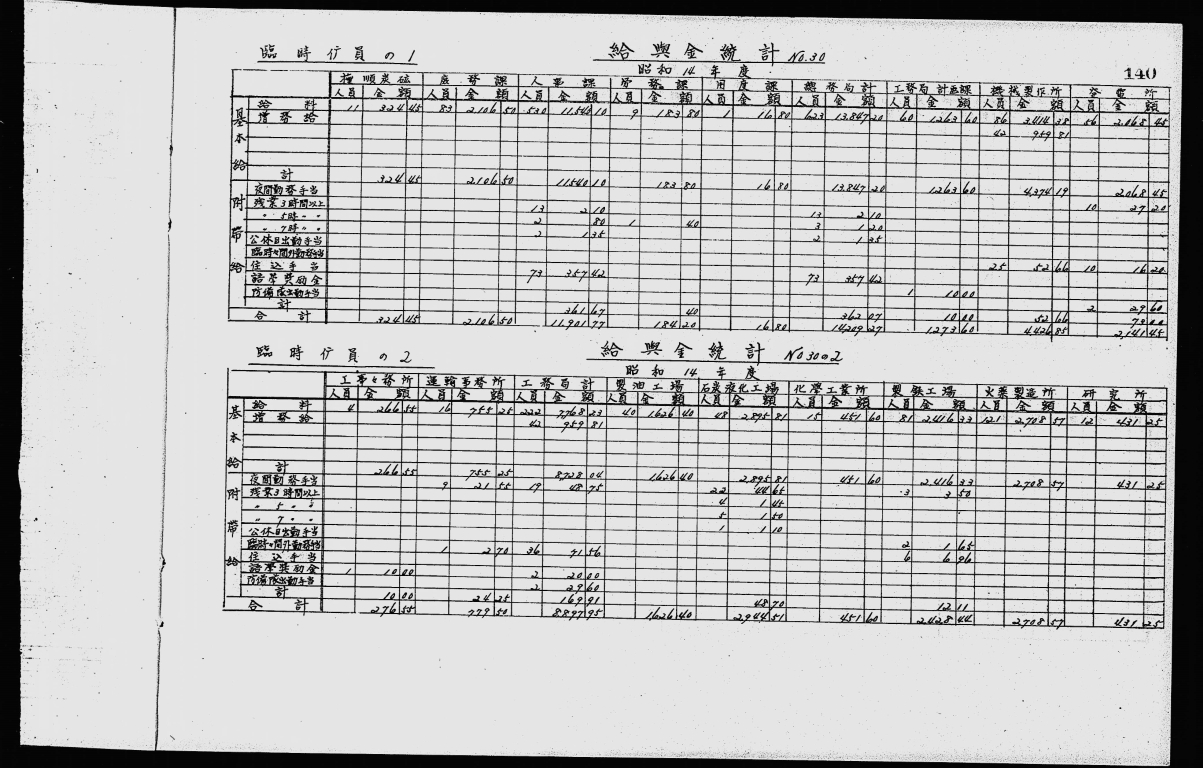 臨時傭員の1 給與金統計 No.30
昭和14年度 140
撫順炭砿 庶務課 人事課 労務課 用度課 總務局計 工務局計画課 機械製作所 発電所
人員 金額 人員 金額 人員 金額 人員 金額 人員 金額 人員 金額 人員 金額 人員 金額 人員 金額
基本給
給料 11 324 45 83 2,106 50 530 11,540 10 9 183 80 1 16 80 623 13,847 20 60 1263 60 86 3,414 38 56 2,068 45
増務給 42 959 81
計 324 45 2,106 50 11,540 10 183 80 16 80 13,847 20 1263 60 4,374 19 2,068 45
附帯給
夜間勤務手当 10 27 20
残業3時間以上 13 2 10 13 2 10
〃 5時〃〃 2 80 1 40 3 1 20
〃 7時〃〃 2 1 35 2 1 35
公休日出勤手当
臨時々間外勤務手当 25 52 66 10 16 20
住込手当
語学奨励金 73 357 42 73 357 42
防備隊出勤手当 1 10 00
計 361 67 40 362 07 10 00 52 66 73 00
合計 324 45 2,106 50 11,901 77 184 20 16 80 14,209 27 1,273 60 4,426 85 2,141 45
臨時傭員の2 給與金統計 No 30の2
昭和14年度
工事々務所 運輸事務所 工務局計 製油工場 石炭液化工場 化学工業所 製鉄工場 火薬製造所 研究所
人員 金額 人員 金額 人員 金額 人員 金額 人員 金額 人員 金額 人員 金額 人員 金額 人員 金額
基本給
給料 4 266 55 16 755 25 222 7,768 23 40 1,626 40 48 2,895 81 15 451 60 81 2,416 33 121 2,708 57 12 431 25
増務給 42 959 81
計 266 55 755 25 8,728 04 1,626 40 2,895 81 451 60 2,416 33 2,708 57 431 25
附帯給
夜間勤務手当 9 21 55 19 48 75 22 44 65 3 3 50
残業3時間以上 4 1 45
〃 5〃〃 5 1 50
〃 7〃〃 1 1 10
公休日出勤手当
臨時々間外勤務手当 1 2 70 36 71 56 2 1 65
住込手当 6 6 96
語学奨励金 1 10 00 2 20 00
防備隊出勤手当 2 29 60
計 10 00 24 25 169 91 48 70 12 11
合計 276 55 779 50 8,897 95 1,626 40 2,944 51 451 60 2,428 44 2,708 57 431 25